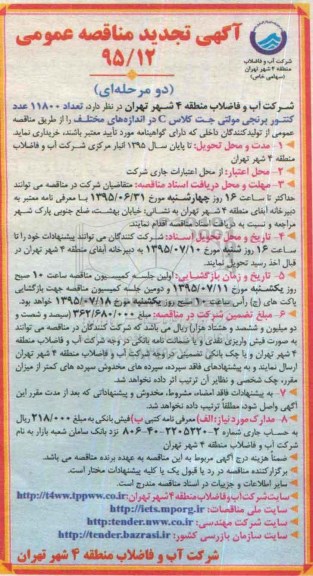 شرکت آب و فاضلاب
منطقه ۴ شهر تهران
(سهامی خاص)
آگهی تجدید مناقصه عمومی
۹۵/۱۲
(دو مرحله‌ای)
شرکت آب و فاضلاب منطقه ۴ شهر تهران در نظر دارد، تعداد ۱۱۸۰۰ عدد
کنتور برنجی مولتی جت کلاس C در اندازه‌های مختلف را از طریق مناقصه
عمومی از تولیدکنندگان داخلی که دارای گواهینامه مورد تأیید معتبر باشند، خریداری نماید.
۱- مدت و محل تحویل: تا پایان سال ۱۳۹۵ انبار مرکزی شرکت آب و فاضلاب
منطقه ۴ شهر تهران
۲- محل اعتبار: از محل اعتبارات جاری شرکت
۳- مهلت و محل دریافت اسناد مناقصه: متقاضیان شرکت در مناقصه می توانند
حداکثر تا ساعت ۱۶ روز چهارشنبه مورخ ۱۳۹۵/۰۶/۳۱ با معرفی نامه معتبر به
دبیرخانه آبفای منطقه ۴ شهر تهران به نشانی: خیابان بهشت، ضلع جنوبی پارک شهر
مراجعه و نسبت به دریافت اسناد مناقصه اقدام نمایند.
۴- تاریخ و محل تحویل اسناد: شرکت کنندگان می توانند پیشنهادات خود را تا
ساعت ۱۶ روز شنبه مورخ ۱۳۹۵/۰۷/۱۰ به دبیرخانه آبفای منطقه ۴ شهر تهران در
قبال اخذ رسید تحویل نمایند.
۵- تاریخ و زمان بازگشایی: اولین جلسه کمیسیون مناقصه ساعت ۱۰ صبح
روز یکشنبه مورخ ۱۳۹۵/۰۷/۱۱ و دومین جلسه کمیسیون مناقصه جهت بازگشایی
پاکت های (ج) رأس ساعت ۱۰ صبح روز یکشنبه مورخ ۱۳۹۵/۰۷/۱۸ خواهد بود.
۶- مبلغ تضمین شرکت در مناقصه: مبلغ ۳۶۲/۶۸۰/۰۰۰ (سیصد و شصت و
دو میلیون و ششصد و هشتاد هزار) ریال می باشد که شرکت کنندگان در مناقصه می توانند
به صورت فیش واریزی نقدی و یا ضمانت نامه بانکی در وجه شرکت آب و فاضلاب منطقه
۴ شهر تهران و یا چک بانکی تضمینی در وجه شرکت آب و فاضلاب منطقه ۴ شهر تهران
ارسال نمایند و به پیشنهادهای فاقد سپرده، سپرده های مخدوش سپرده های کمتر از میزان
مقرر، چک شخصی و نظایر آن ترتیب اثر داده نخواهد شد.
۷- به پیشنهادات فاقد امضاء، مشروط، مخدوش و پیشنهاداتی که بعد از مدت مقرر این
آگهی واصل شود، مطلقاً ترتیب داده نخواهد شد.
۸- مدارک مورد نیاز: الف) معرفی نامه کتبی ب) فیش بانکی به مبلغ ۲۱۸/۰۰۰ ریال
به حساب جاری شماره ۲-۲۲۰۵۲۲۰-۴۰-۸۰۶ نزد بانک سامان شعبه یارازی به نام
شرکت آب و فاضلاب منطقه ۴ شهر تهران
ضمناً هزینه درج آگهی مربوط به این مناقصه به عهده برنده مناقصه می باشد.
برگزارکننده مناقصه در رد یا قبول یک یا کلیه پیشنهادات مختار است.
سایر اطلاعات و جزییات در اسناد مناقصه مندرج است.
سایت شرکت آب و فاضلاب منطقه ۴ شهر تهران: http://t4ww.tppww.co.ir
سایت ملی مناقصات: http://iets.mporg.ir
سایت شرکت مهندسی: http:tender.nww.co.ir
سایت سازمان بازرسی کشور: http://tender.bazrasi.ir
شرکت آب و فاضلاب منطقه ۴ شهر تهران